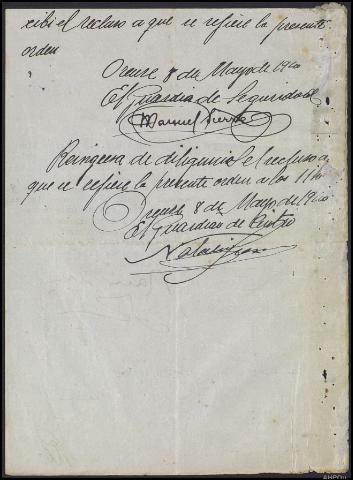 cibi el recluso a que se refiere la presente
orden
Orense 8 de Mayo de 1920
El Guardia de Seguridad
Manuel
Reingresa de diligencias el recluso a
que se refiere la presente orden a las 11 h
Orense 8 de Mayo de 1920
El Guardian de Rastro
AHPOu